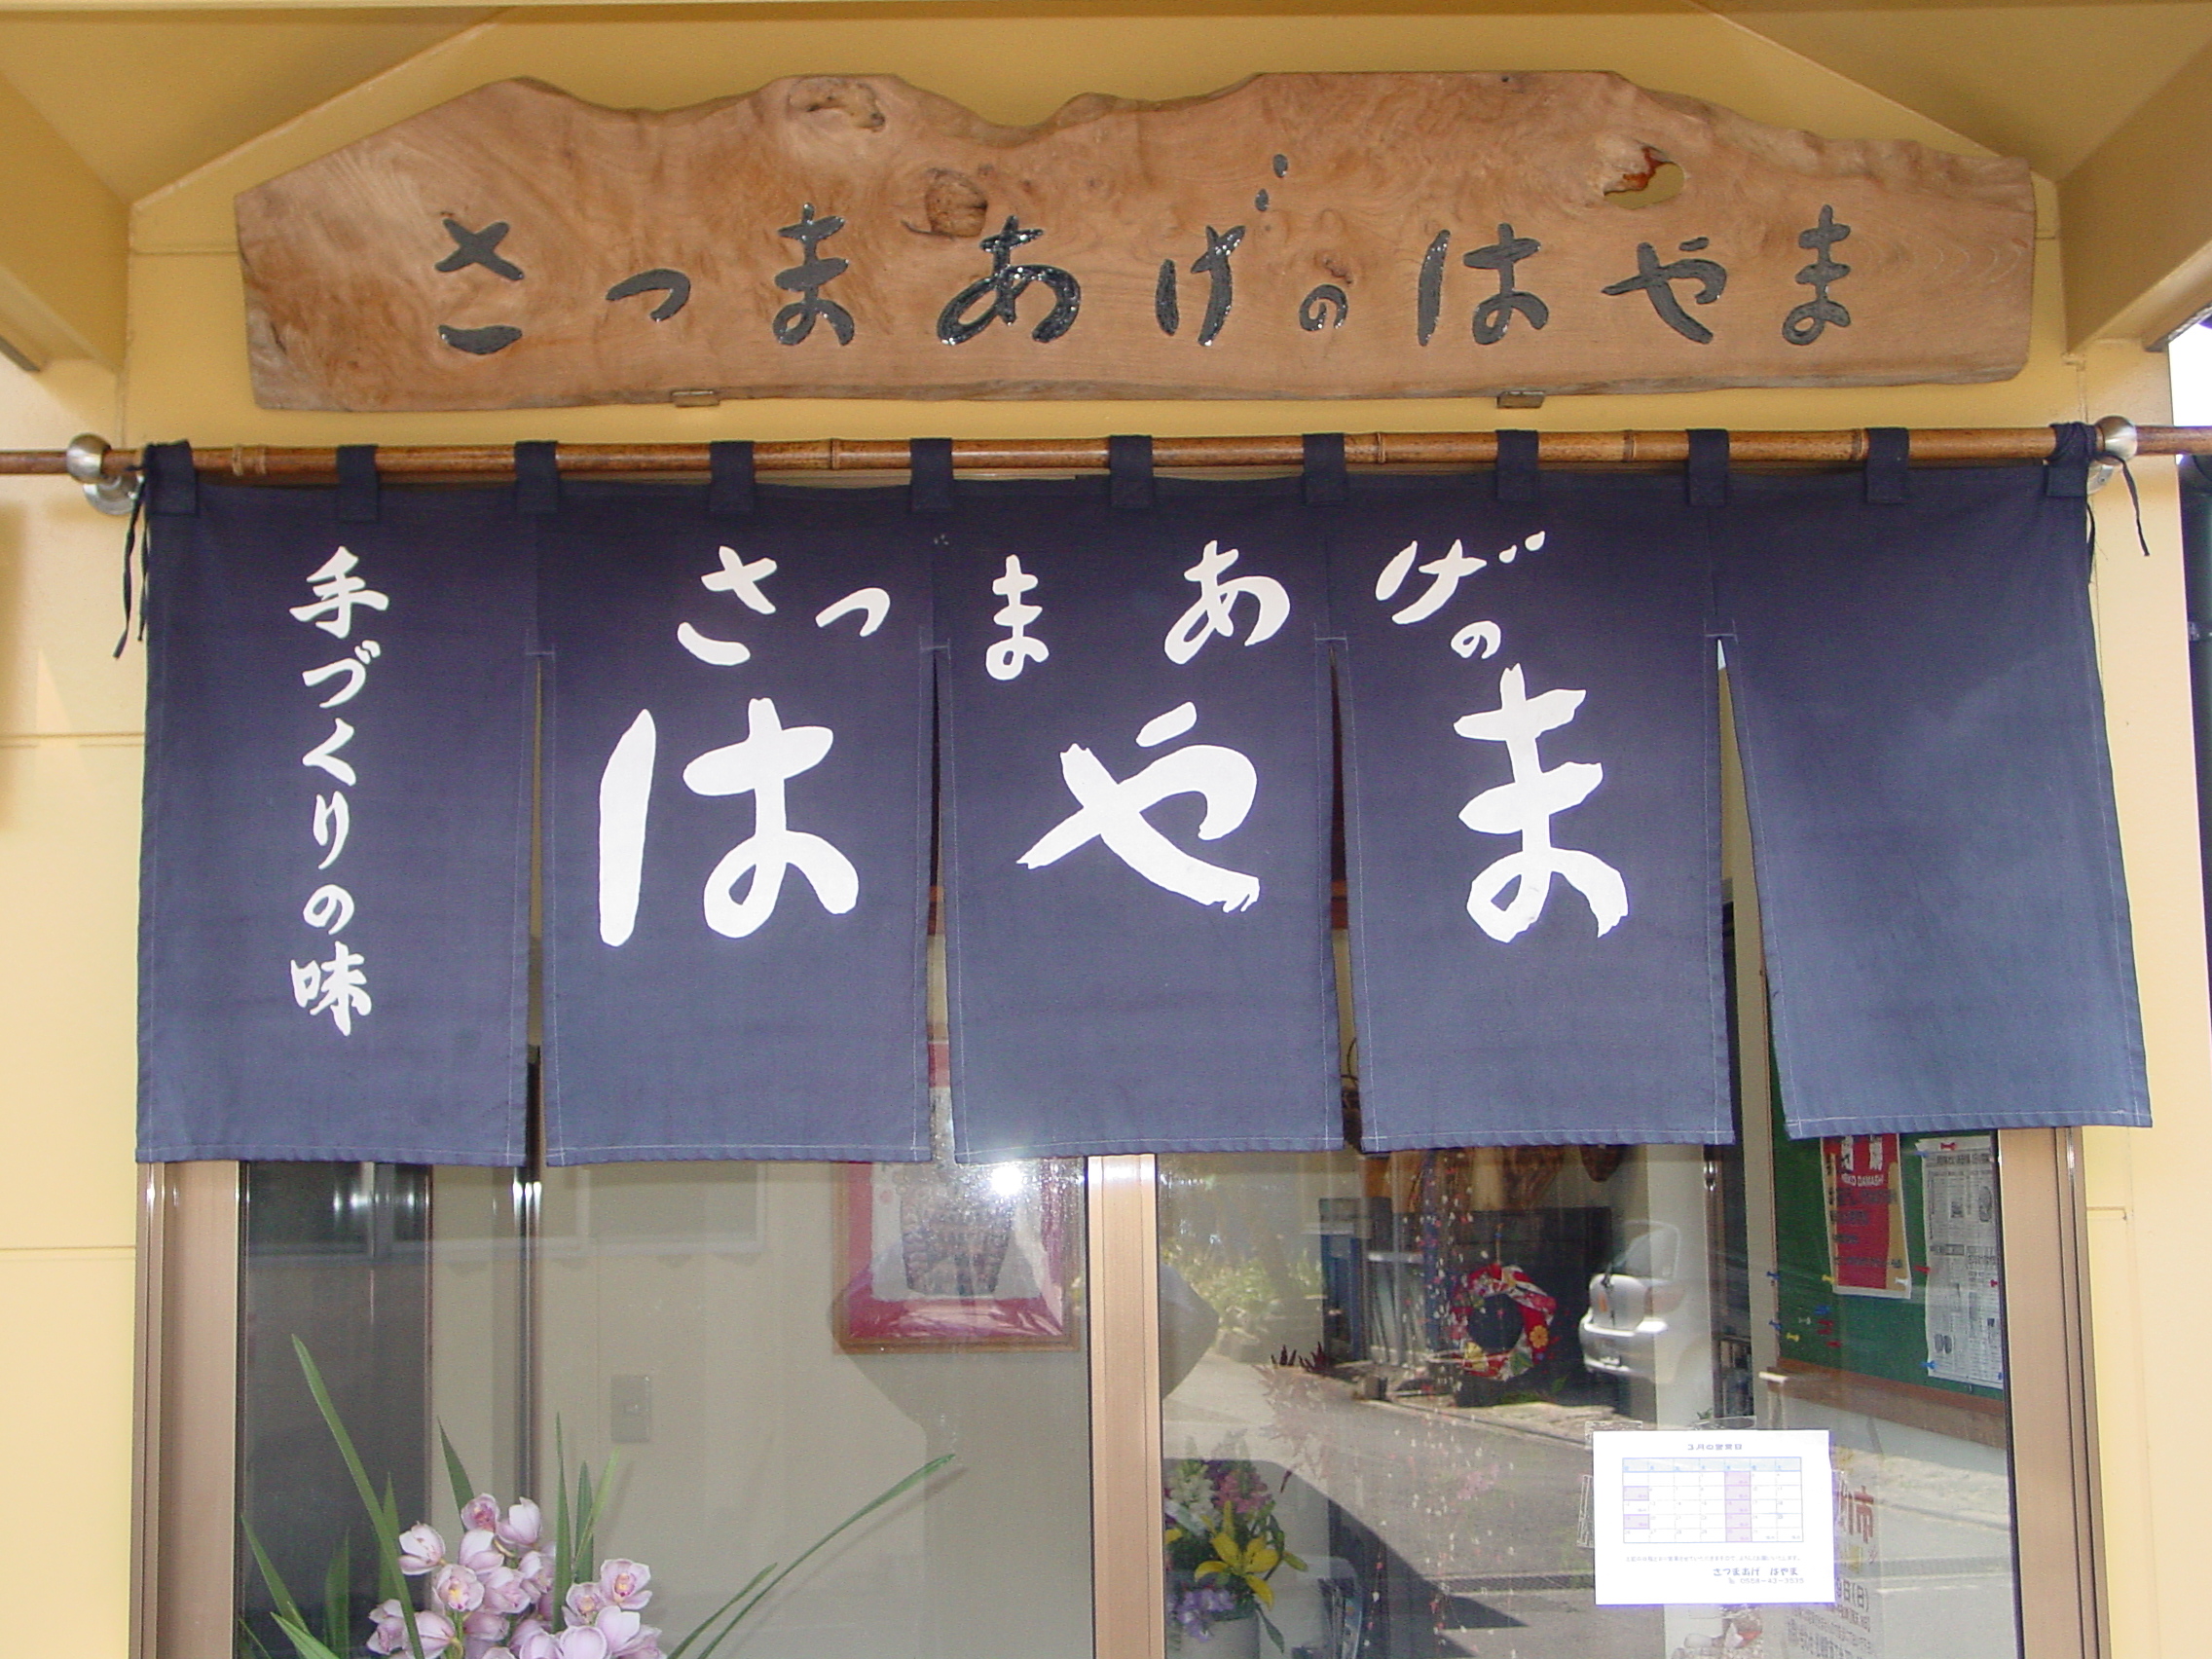 さつまあげのはやま
手づくりの味
さつまあげの
はやま
3月の営業日
さつまあげ はやま